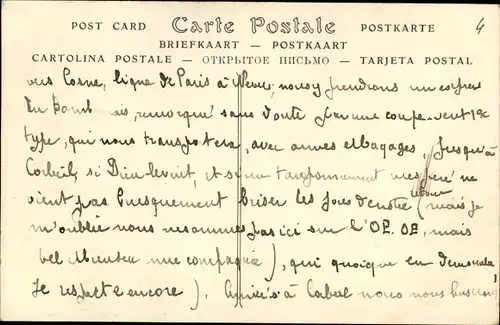 POST CARD Carte Postale POSTKARTE 4
BRIEFKAART — POSTKAART
CARTOLINA POSTALE — ОТКРЫТОЕ ПИСЬМО — TARJETA POSTAL
vers Cosne, ligne de Paris à Nevers; nous y prendrons un express
du Bourbonnais, remorqué sans doute par une coupe-vent
type, qui nous transportera, avec armes et bagages, jusqu'à
Corbeil, si Dieu le veut, et si un tamponnement ne
vient pas brusquement briser les joies de notre retour (mais je
m'oublie nous ne sommes pas ici sur l'
une compagnie), qui quoique en
je respecte encore). à Corbeil nous nous